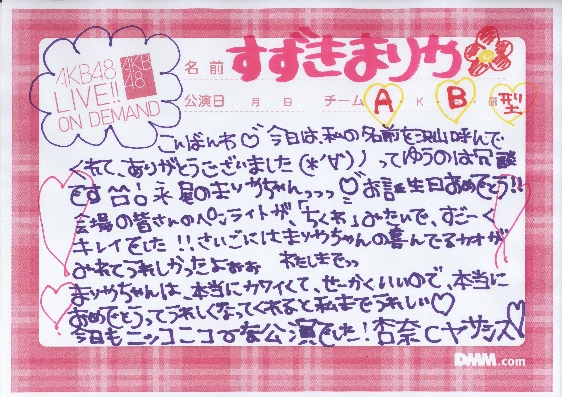 AKB48
LIVE!!
ON DEMAND
AKB
48
名前 すずきまりや
公演日 月 日 チーム A・K・B・研 型
こんばんわ♡今日は、私の名前を沢山呼んで
くれて、ありがとうございました(*´∀`)ノってゆうのは冗談
です 永尾まりやちゃんっっっ♡お誕生日おめでとう!!
会場の皆さんのペンライトが、「ちくわ」みたいで、すごーく
キレイでした!!さいごにはまりやちゃんの喜んでるカオが
みれてうれしかったよぉぉ わたしまでっっ
まりやちゃんは、本当にカワイくて、せーかくいいので、本当に
おめでとうってうれしくなってくれると私までうれしい♡
今日もニッコニコな公演でした!杏奈Cヤサシス♡
DMM.com